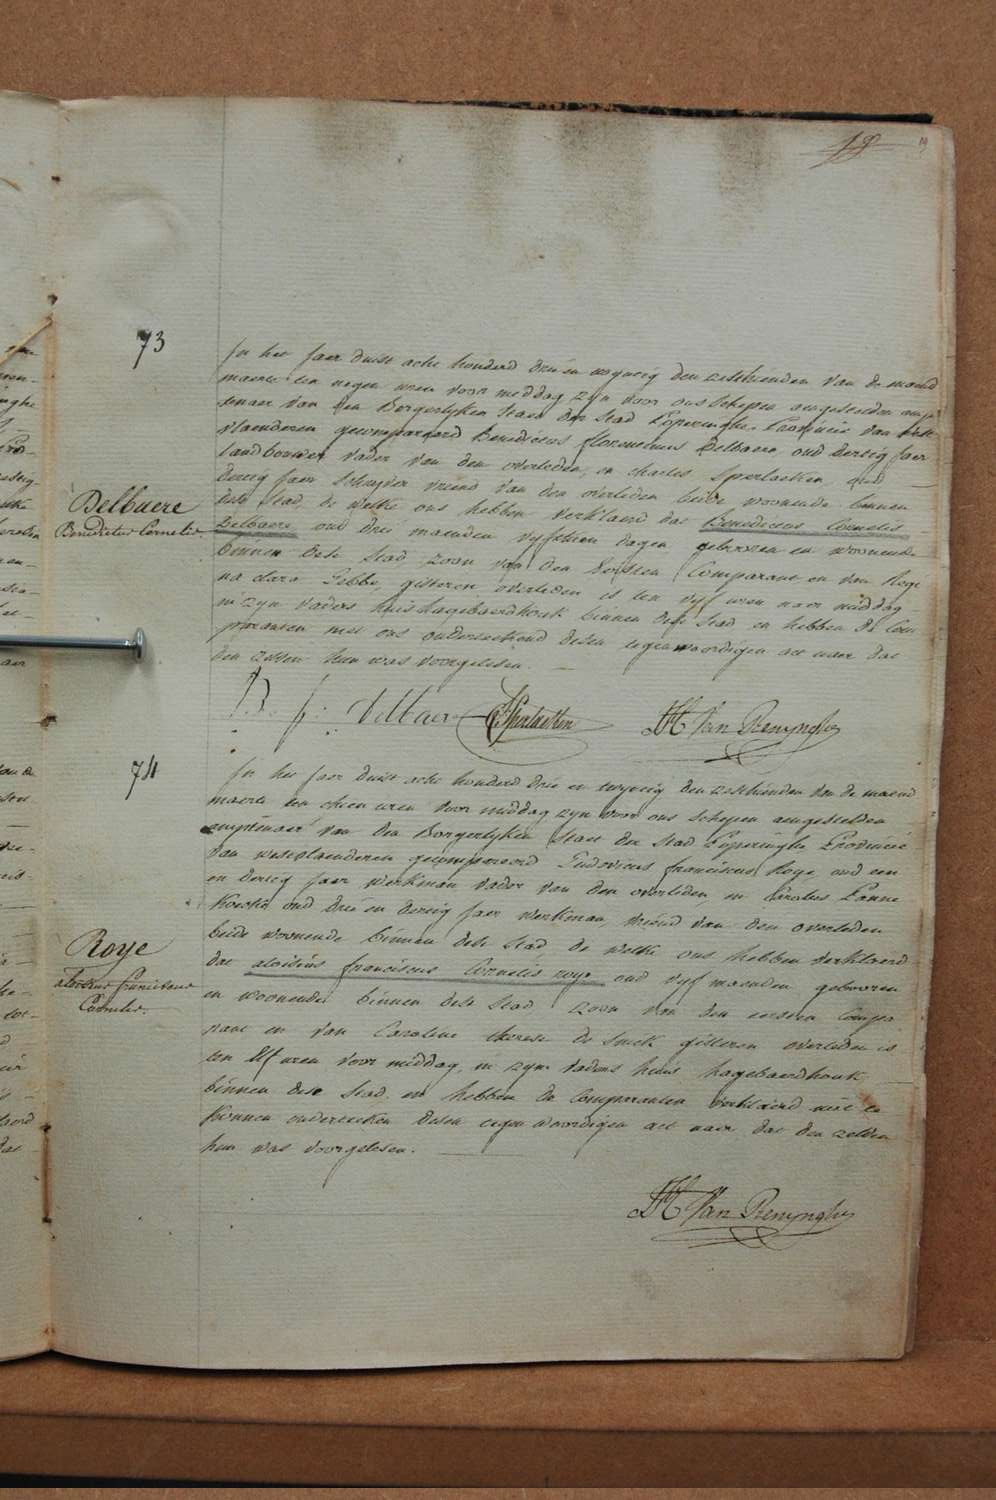 18
19
73
Delbaere
Benedictus Cornelis.
In het Jaer duist acht honderd drie en twyntig den zesthienden van de maend
maerte ten negen uren voor middag zyn voor ons schepen aengestelden
tenaer van den Borgerlyken staet der stad Poperinghe Provincie van West
vlaenderen gecompareerd Benedictus florentinus Delbaere, oud dertig Jaer
landbouwer vader van den overleden, en charles Sperlaeken, oud
dertig Jaer schryver vriend van den overleden beide woonende binnen
dese stad, de welke ons hebben verklaerd dat Benedictus Cornelis
Delbaere oud drie maenden vyfthien dagen gebooren en woonende
binnen dese stad zoon van den Eersten Comparant en van Regi
na clara Febbe, gisteren overleden is ten vyf uren naer middag
in zyn vaders huis hagebaerdhouk binnen dese stad en hebben de Com
paranten met ons onderteekend desen tegenwoordigen act naer dat
den zelven hun was voorgelesen.
B. f: Delbaere Sperlaeken JH Van Renynghe
74
Roye
aloisius franciscus
Cornelis.
In het Jaer duist acht honderd drie en twyntig den zesthienden van de maend
maerte ten thien uren voor middag zyn voor ons schepen aengestelden
amptenaer van den Borgerlyken staet der stad Poperinghe Provincie
van westvlaenderen gecompareerd Ludovicus franciscus Roye oud een
en dertig Jaer werkman vader van den overleden en Carolus Panne
koecke oud drie en dertig Jaer werkman, vriend van den overleden
beide woonende binnen dese stad de welke ons hebben verklaerd
dat aloisius franciscus Cornelis roye oud vyf maenden gebooren
en woonende binnen dese stad zoon van den eersten Compa
rant en van Caroline therese de smick gisteren overleden is
ten Elf uren voor middag, in zyn vaders huis hagebaerdhouk
binnen dese stad en hebben de Comparanten verklaerd niet te
konnen onderteeken desen tegenwoordigen act naer dat den zelven
hun was voorgelesen.
JH Van Renynghe